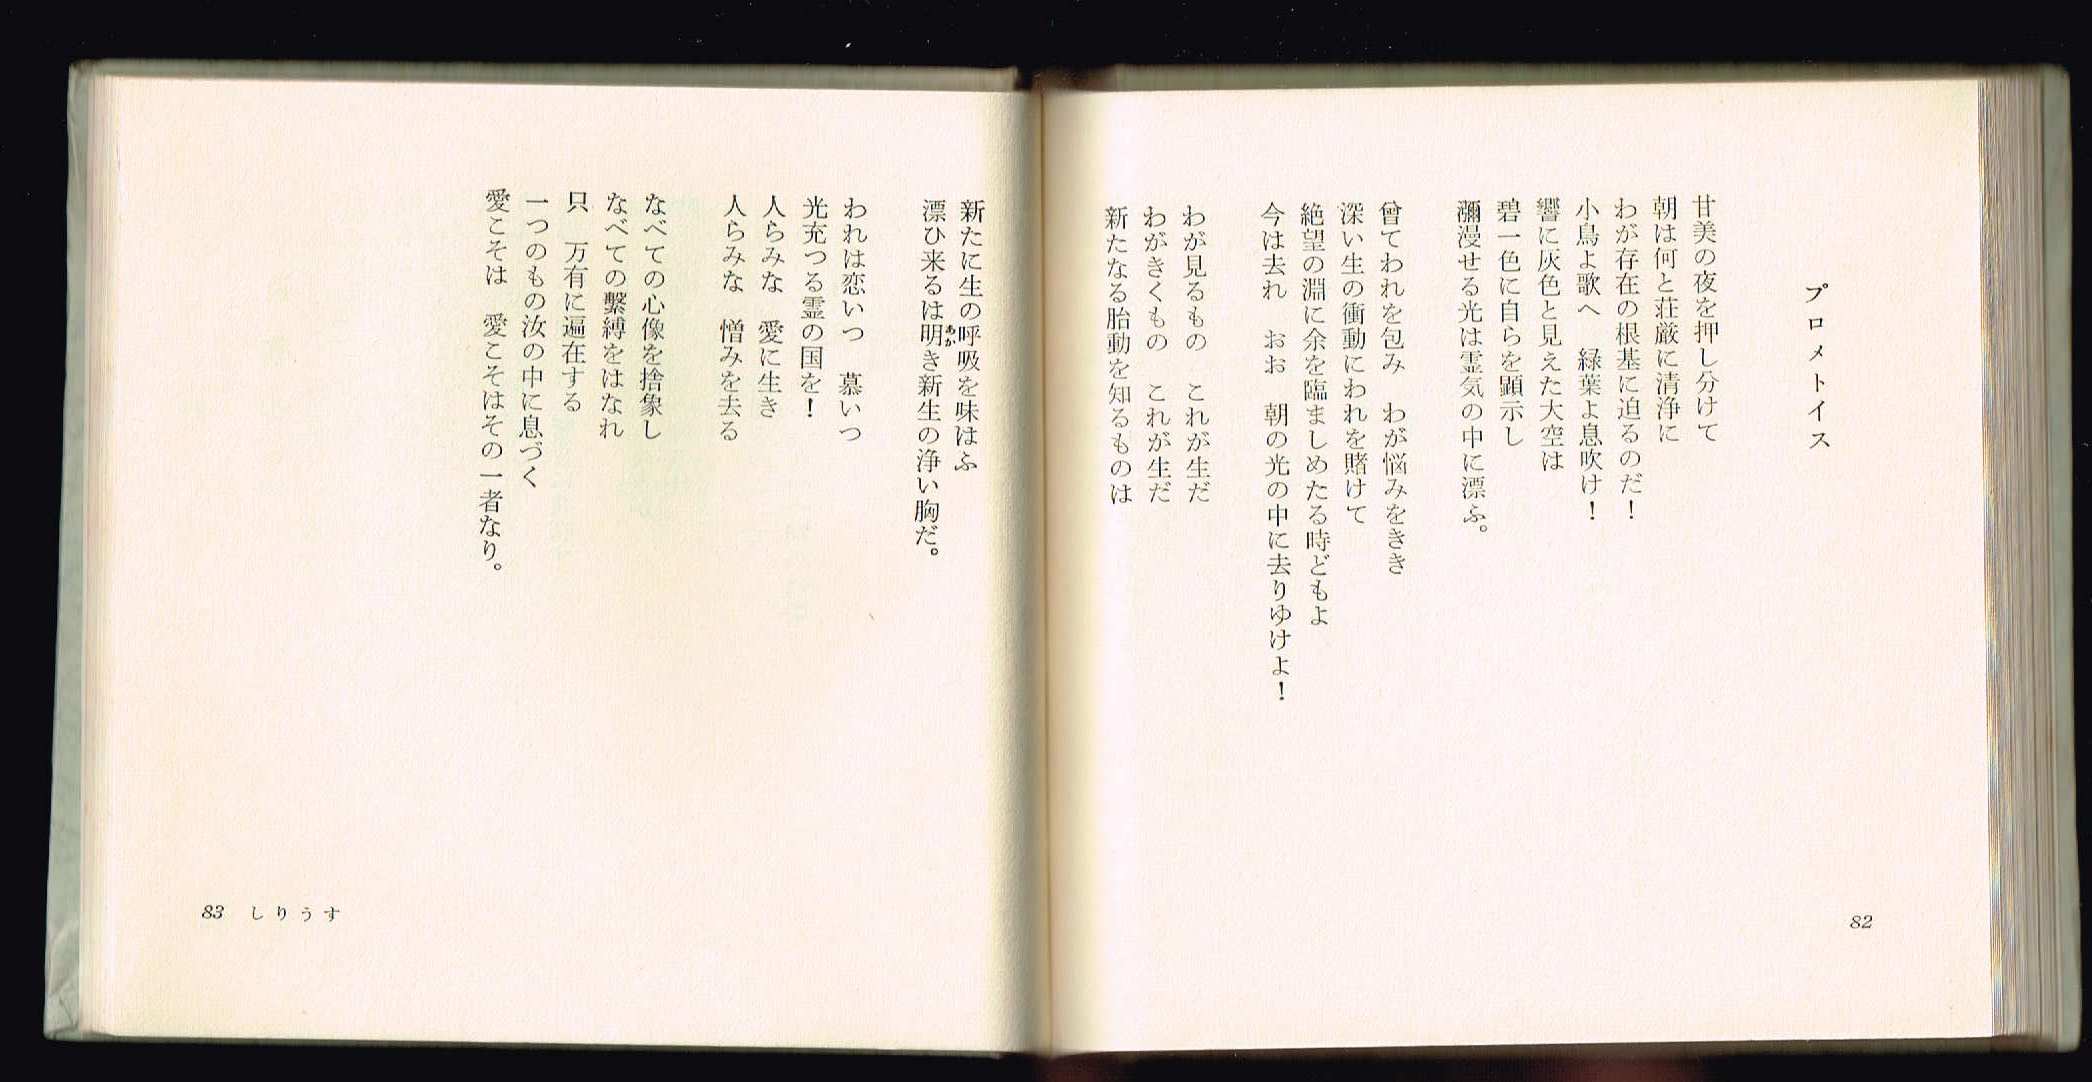 プロメトイス
甘美の夜を押し分けて
朝は何と荘厳に清浄に
わが存在の根基に迫るのだ！
小鳥よ歌へ　緑葉よ息吹け！
響に灰色と見えた大空は
碧一色に自らを顕示し
瀰漫せる光は霊気の中に漂ふ。
曾てわれを包み　わが悩みをきき
深い生の衝動にわれを賭けて
絶望の淵に余を臨ましめたる時どもよ
今は去れ　おお　朝の光の中に去りゆけよ！
わが見るもの　これが生だ
わがきくもの　これが生だ
新たなる胎動を知るものは
82
新たに生の呼吸を味はふ
漂ひ来るは明き新生の浄い胸だ。
あか
われは恋いつ　慕いつ
光充つる霊の国を！
人らみな　愛に生き
人らみな　憎みを去る
なべての心像を捨象し
なべての繫縛をはなれ
只　万有に遍在する
一つのもの汝の中に息づく
愛こそは　愛こそはその一者なり。
83 しりうす